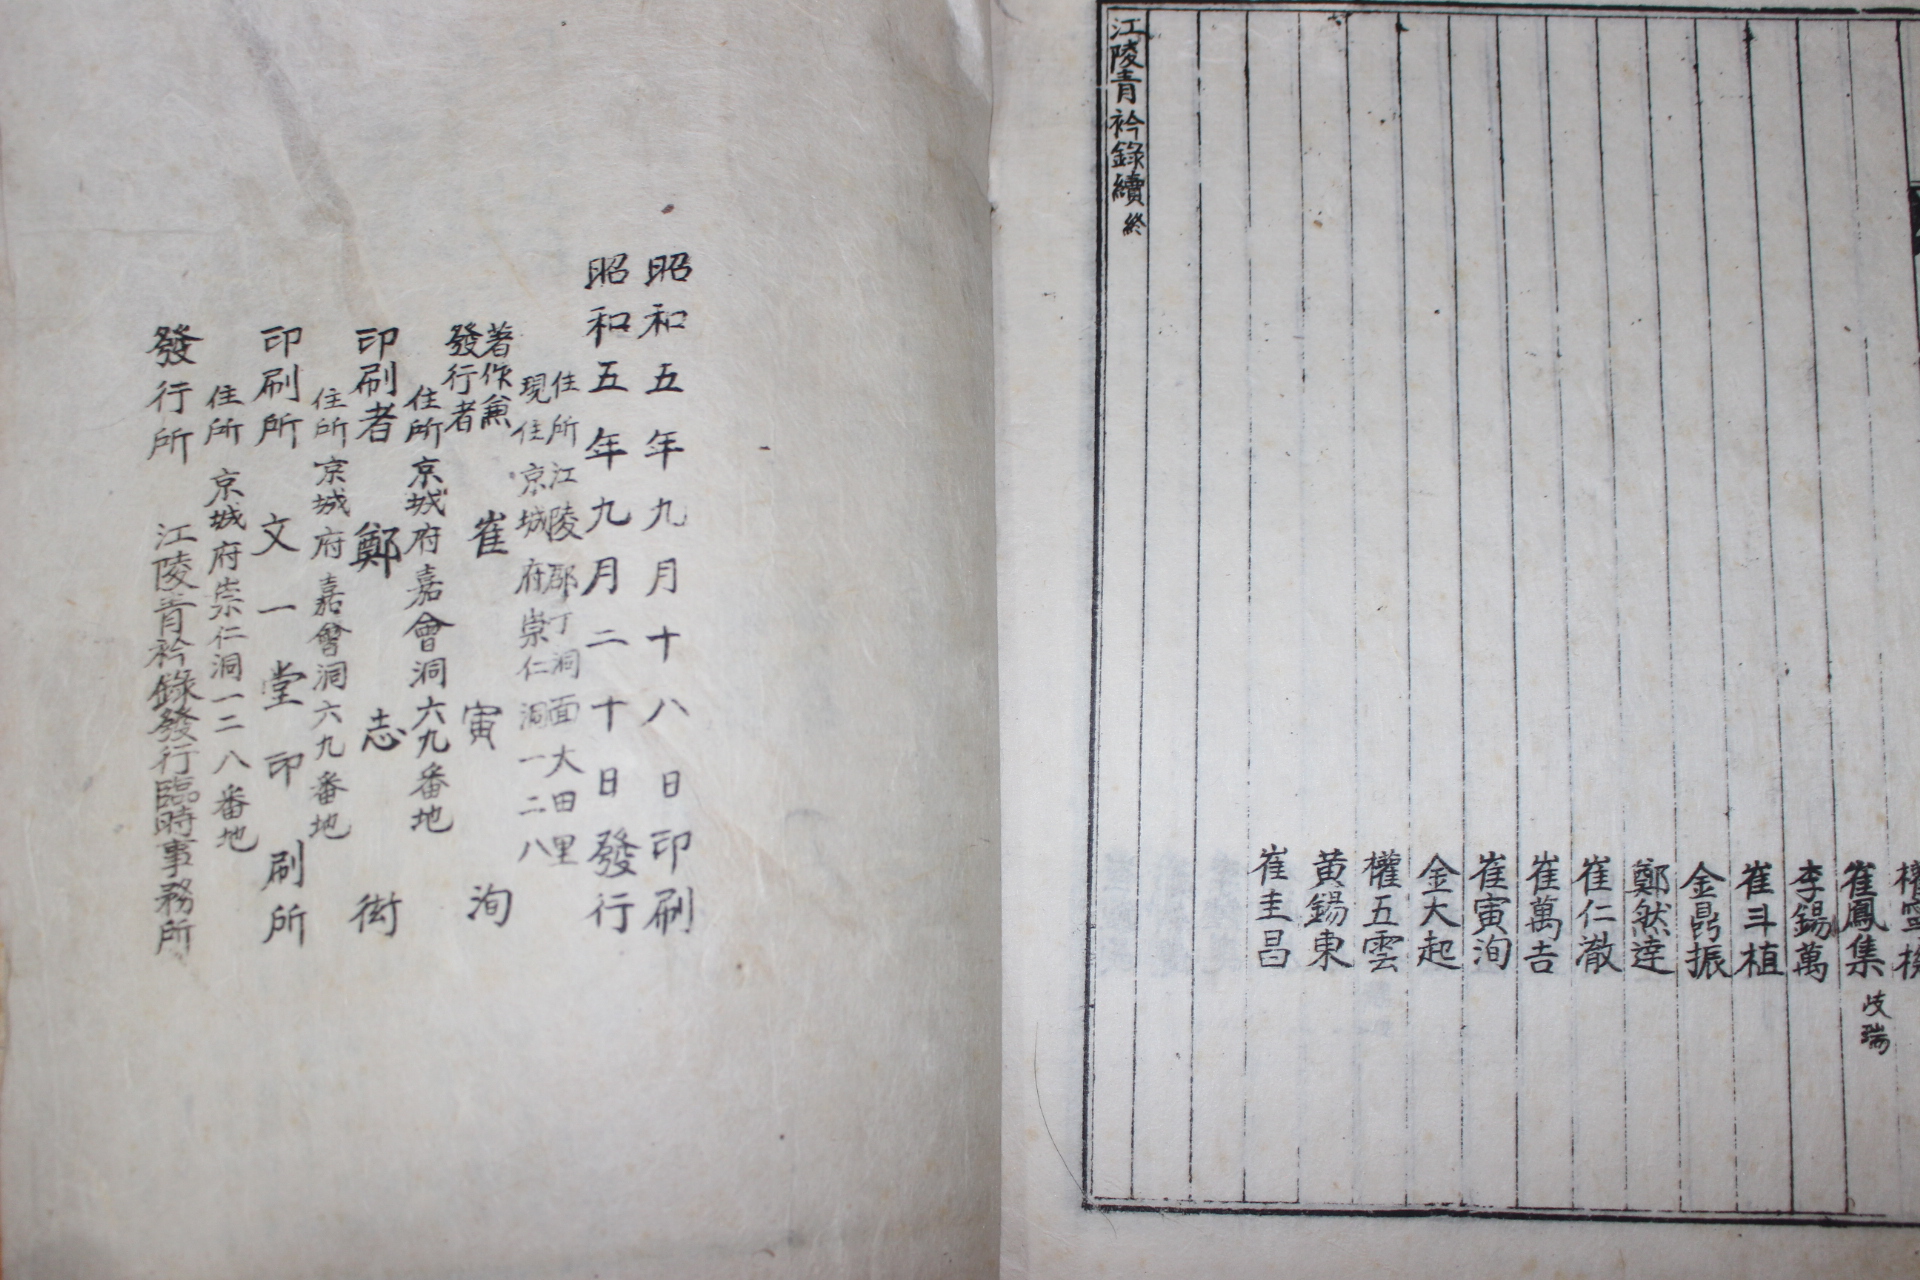 崔鳳集 歧瑞
李錫萬
崔斗植
金鼎振
鄭然逹
崔仁澈
崔萬吉
崔寅洵
金大起
權五雲
黃錫東
崔圭昌
江陵青衿錄續 終
昭和五年九月十八日印刷
昭和五年九月二十日發行
住所 江陵郡丁洞面大田里
現住 京城府崇仁洞一二八
著作兼
發行者 崔寅洵
住所 京城府嘉會洞六九番地
印刷者 鄭志衒
住所 京城府嘉會洞六九番地
印刷所 文一堂印刷所
住所 京城府崇仁洞一二八番地
發行所 江陵青衿錄發行臨時事務所